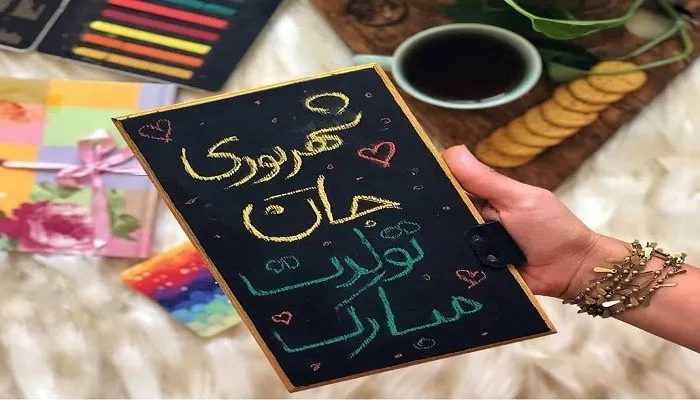 شهریوری
جان
تولدت
مبارک